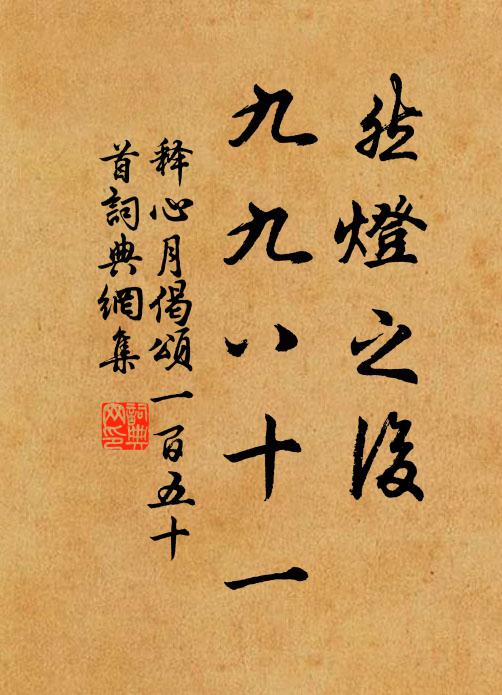 然燈之後
九九八十一
释心月偈頌一百五十
首詞典網集
詞典网印